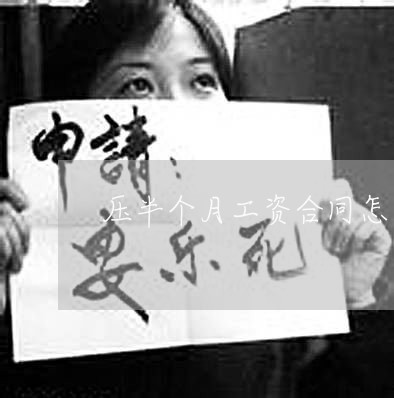 申請：
压半个月工资合同怎
要乐死